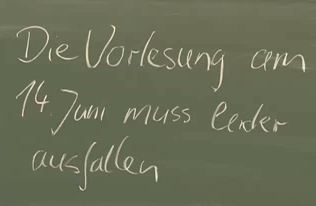 Die Vorlesung am
14. Juni muss leider
ausfallen